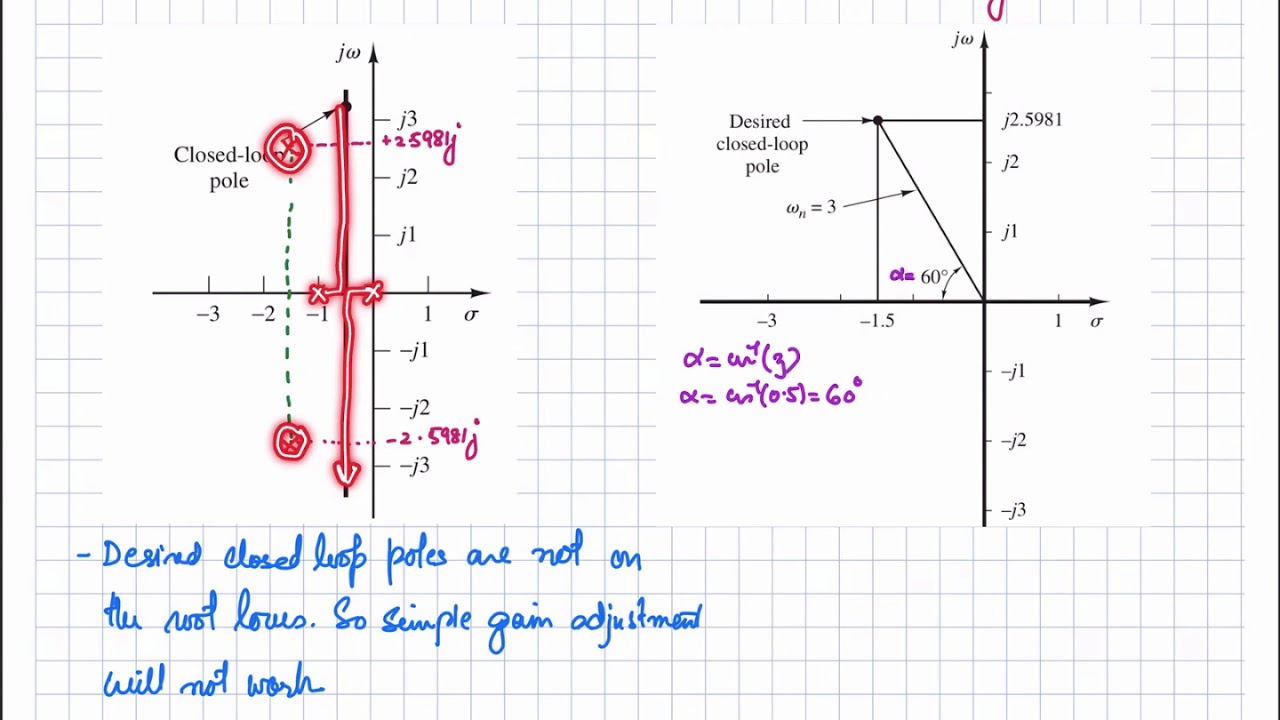 jω
j3
+2.5981j
Closed-loop
pole
j2
j1
−3 −2 −1 1 σ
−j1
−j2
−2.5981j
−j3
jω
Desired
closed-loop
pole
j2.5981
j2
ωn = 3
j1
α= 60°
−3 −1.5 1 σ
α = cos⁻¹(ξ)
α = cos⁻¹(0.5) = 60°
−j1
−j2
−j3
- Desired closed loop poles are not on
the root locus. So simple gain adjustment
will not work